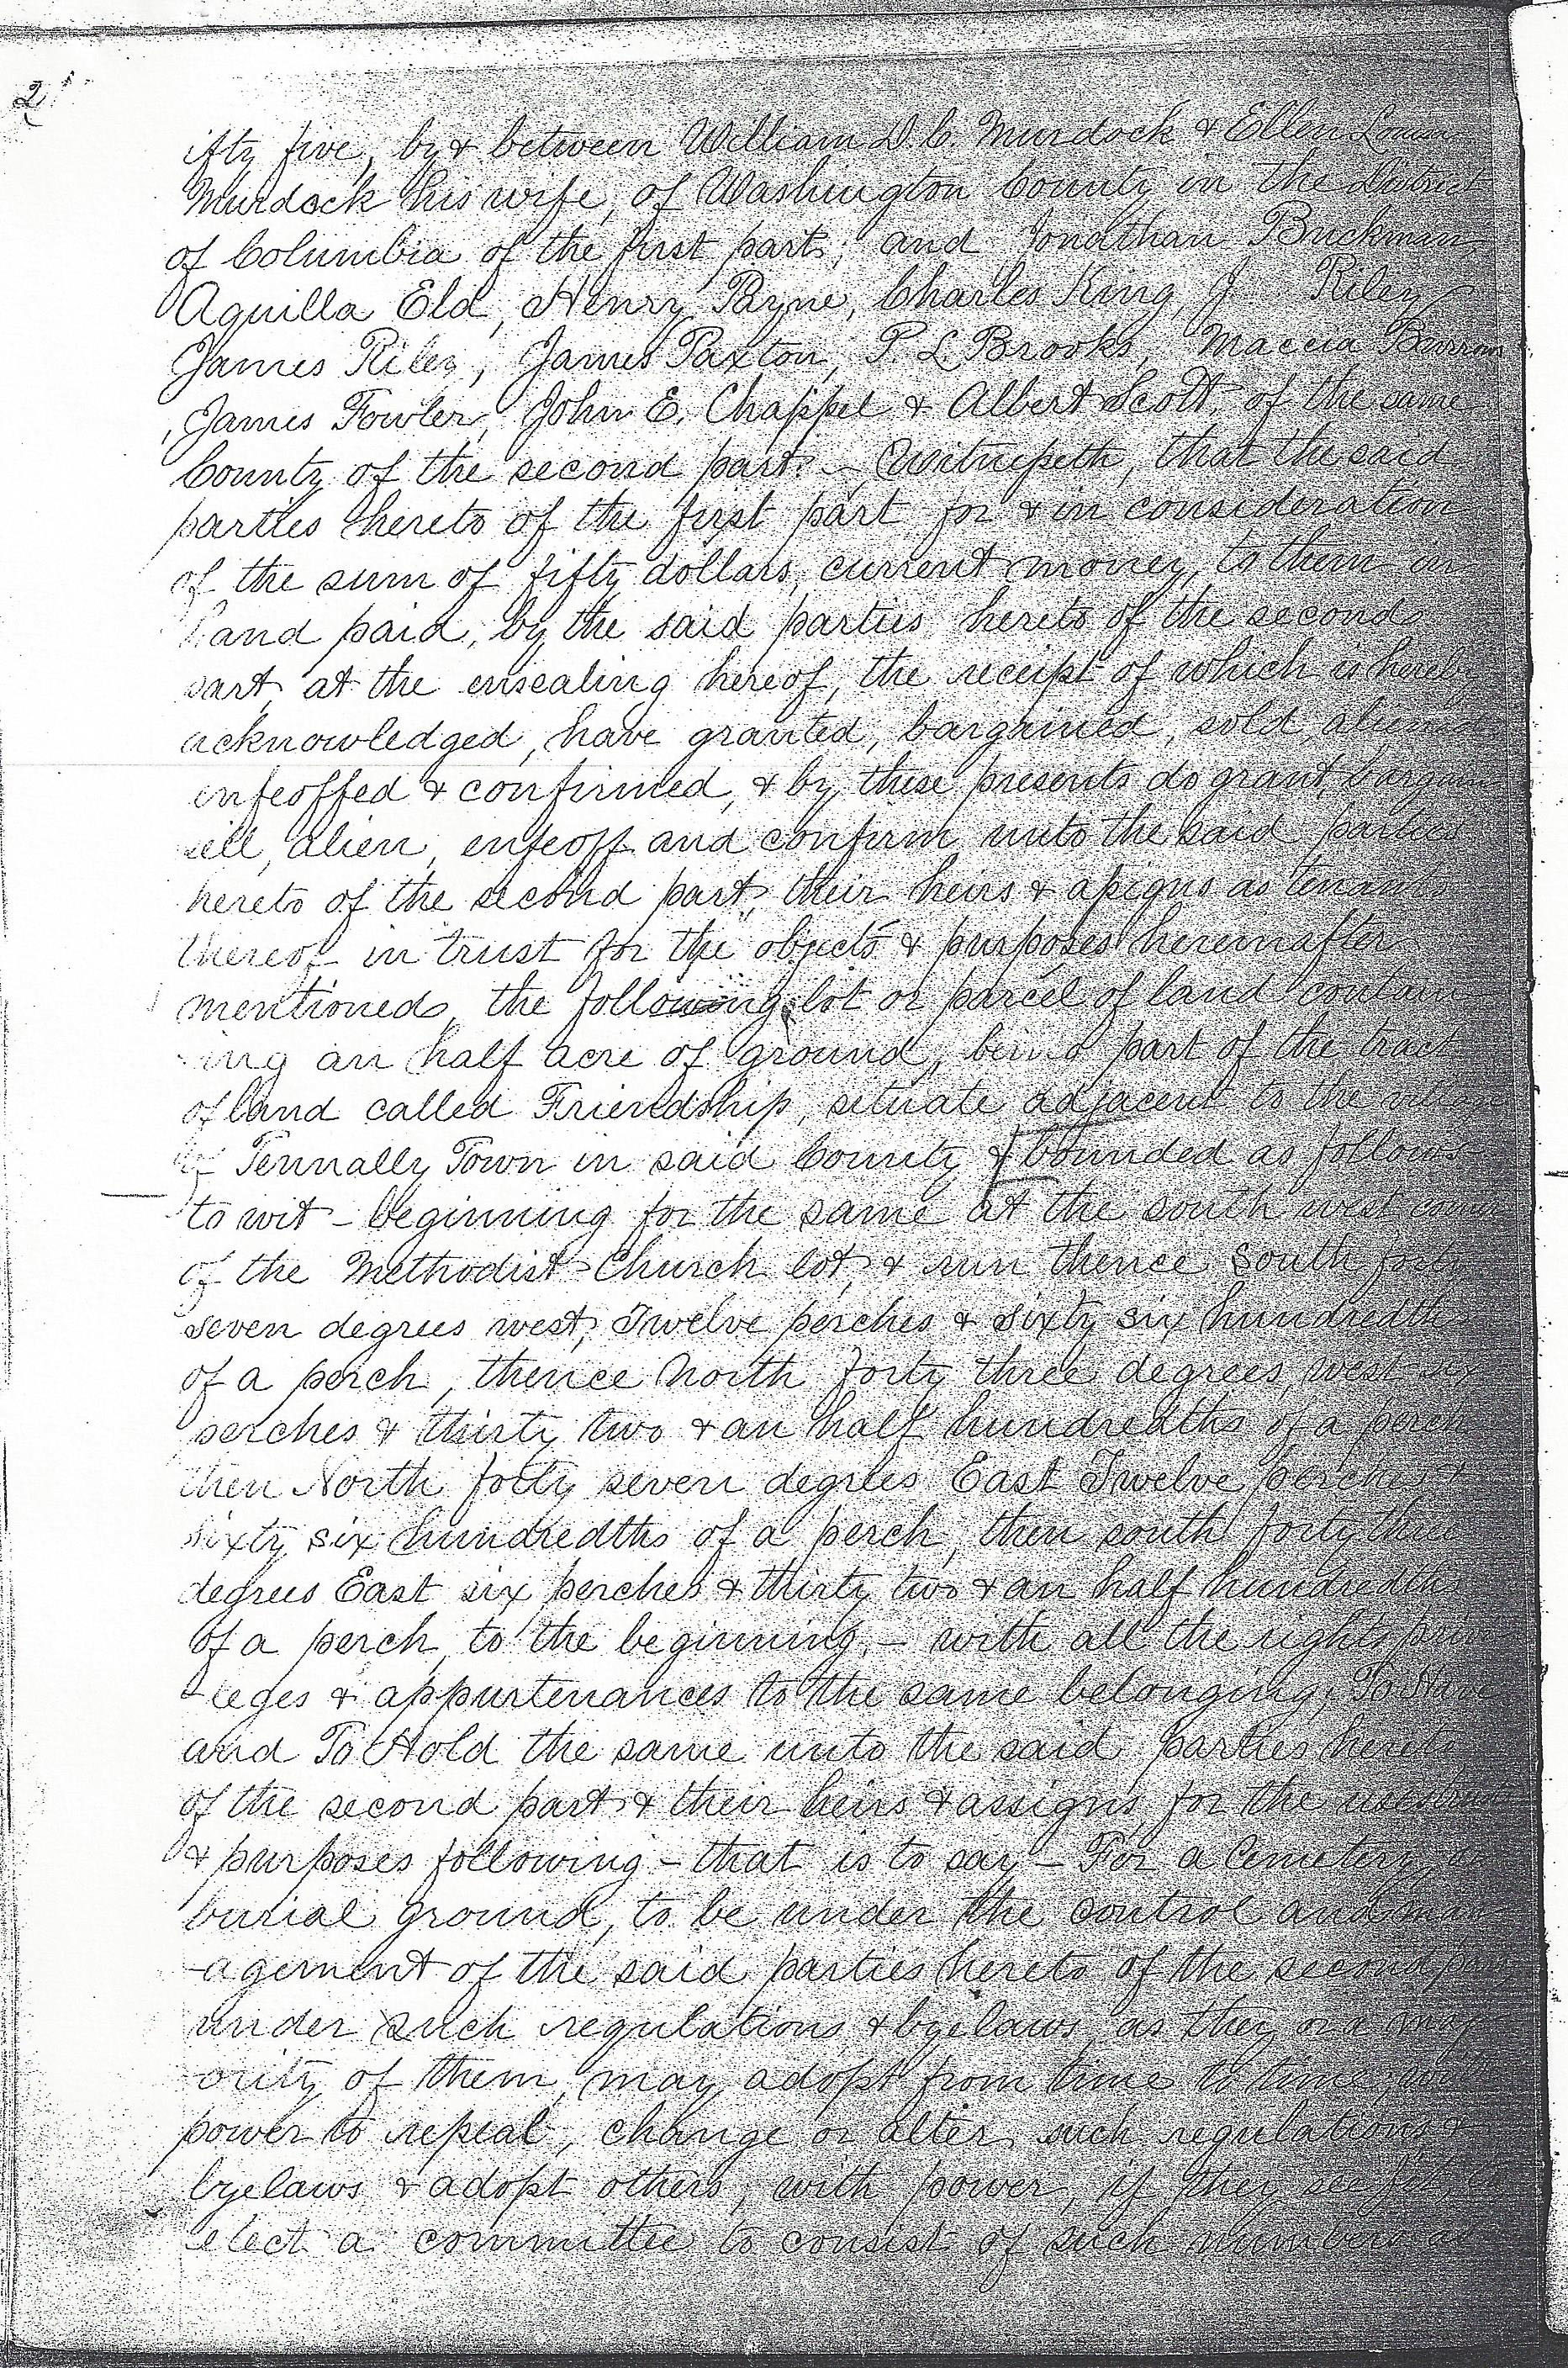 2
ifty five, by & between William D. C. Murdock & Ellen Louisa
Murdock his wife, of Washington County in the District
of Columbia of the first part; and Jonathan Buckman,
Aquilla Eld, Henry Payne, Charles King, J Riley
James Riley, James Paxton, P L Brooks, Maccia Burrows
James Fowler, John E. Chappel & Albert Scott, of the same
County of the second part. – Witnesseth, that the said
parties hereto of the first part for & in consideration
of the sum of fifty dollars, current money, to them in
hand paid, by the said parties hereto of the second
part, at the ensealing hereof, the receipt of which is hereby
acknowledged, have granted, bargained, sold, aliened
enfeoffed & confirmed, & by these presents do grant, bargain
sell, alien, enfeoff and confirm unto the said parties
hereto of the second part, their heirs & assigns as tenants
thereof in trust for the objects & purposes hereinafter
mentioned, the following lot or parcel of land contain
ing an half acre of ground, being part of the tract
of land called Friendship, situate adjacent to the village
of Tennally Town in said County & bounded as follows
to wit – beginning for the same at the south west corner
of the Methodist Church lot, & run thence South forty
seven degrees west, Twelve perches & sixty six hundredths
of a perch, thence North forty three degrees west six
perches & thirty two & an half hundredths of a perch
then North forty seven degrees East Twelve perches &
sixty six hundredths of a perch, then south forty three
degrees East six perches & thirty two & an half hundredths
of a perch, to the beginning, – with all the rights privi
-leges & appurtenances to the same belonging; To Have
and To Hold the same unto the said parties hereto
of the second part & their heirs & assigns, for the uses trusts
& purposes following – that is to say – For a Cemetery or
burial ground, to be under the control and man
-agement of the said parties hereto of the second part
under such regulations & byelaws as they or a maj
ority of them, may adopt from time to time, with
power to repeal, change or alter such regulations &
byelaws & adopt others, with power, if they see fit, to
elect a committee to consist of such numbers as